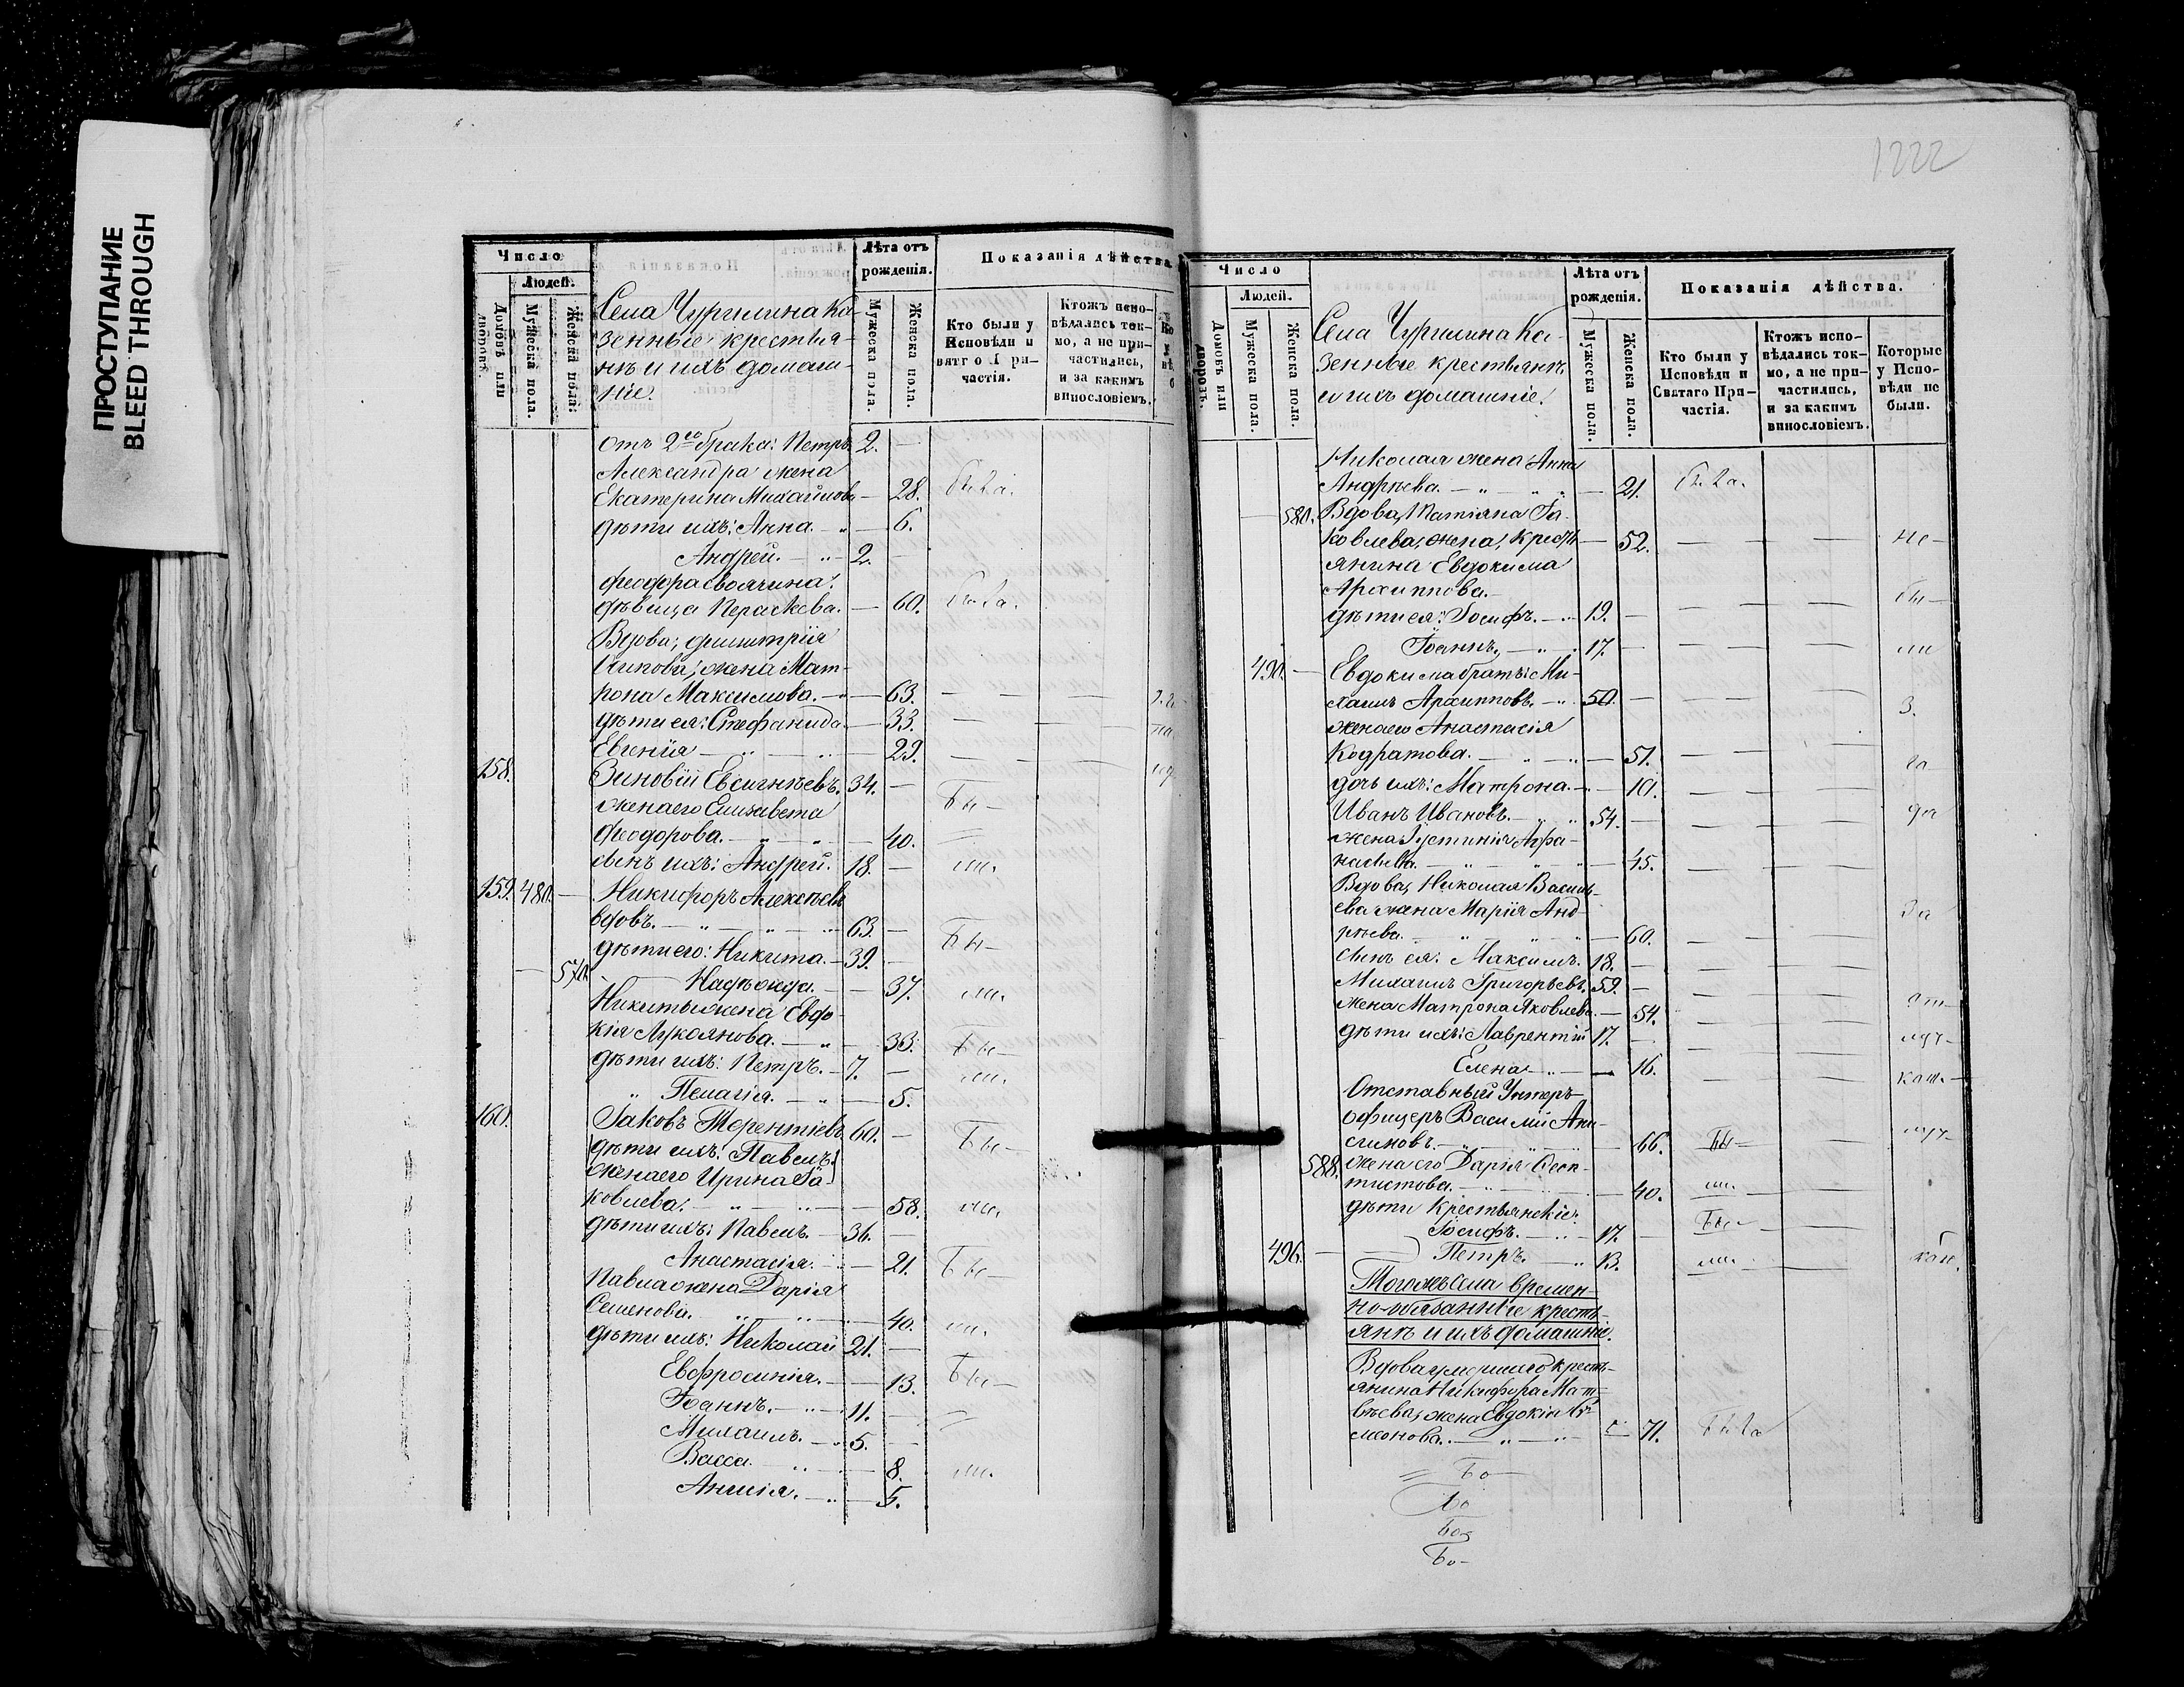 ПРОСТУПАНИЕ
BLEED THROUGH
Число
Людей.
Домовъ или дворовъ.
Мужеска пола.
Женска пола.
Села Чурилина Ка-
зенные крестья-
нѣ и ихъ домаш-
ніе.
Лѣта отъ
рожденія.
Мужеска пола.
Женска пола.
Показанія дѣйства
Кто были у
Исповѣди и
Ктожъ испо-
вѣдались ток-
мо, а не при-
частились,
и за какимъ
винословіемъ.
отъ 2го брака: Петръ 2. —
Александра жена
Екатерина Михайлова — 28.
дѣти ихъ: Анна — 6.
Андрей. — 2. —
Феодора своячина:
дѣвица Параскева. — 60.
Вдова, Димитрія
жена Мат-
рона Максимова. — 63. — — —
дѣти ея: Стефанида — 33. — —
Евгенія — 29. — — —
158. Зиновій Евсигнѣевъ. 34. — Бы-
жена его Елизавета
Феодорова. — 40.
сынъ ихъ: Андрей. 18. — ли.
159. 480. — Никифоръ Алексѣевъ
вдовъ. — 63. — Бы-
дѣти его: Никита. — 39. —
— 570. Надежда. — 37. ли.
Никиты жена Евдо-
кія Лукоянова. — 33. Бы-
дѣти ихъ: Петръ. — 7. — ли.
Пелагія. — 5.
160. Іаковъ Терентіевъ 60. — Бы-
дѣти ихъ: Павелъ:
жена его Ирина Іа-
ковлева. — 58. ли.
дѣти ихъ: Павелъ. — 36. —
Анастасія. — 21. Бы-
Павла жена Дарія
Семенова. — 40. ли.
дѣти ихъ: Николай 21. —
Евфросинія. — 13. Бы-
Іоаннъ. — 11. —
Михаилъ. — 5. —
Васса. — 8. ли.
5.
1222
Число
Людей.
Домовъ или дворовъ.
Мужеска пола.
Женска пола
Села Чурилина Ка-
зенные крестьянѣ
и ихъ домашніе.
Лѣта отъ
рожденія.
Мужеска пола.
Женска пола.
Показанія дѣйства.
Кто были у
Исповѣди и
Святаго При-
частія.
Ктожъ испо-
вѣдались ток-
мо, а не при-
частились,
и за какимъ
винословіемъ.
Которые
у Испо-
вѣди не
были.
Николая жена Анна
Андреева. — 21.
— 580. Вдова, Татіана Іа-
ковлева, жена, крест- — 52. — — не-
янина Евдокима
Архиппова.
дѣти ея: Іосифъ. — 19. — — — бы-
Іоаннъ. — 17. — — — ли
490. — Евдокима братъ: Ми-
хаилъ Архипповъ. — 50. — — — З.
жена его Анастасія
Кодратова. — 51. — —
дочь ихъ: Матрона. — 10. — —
Иванъ Ивановъ. — 54. — — —
жена Іустинія Афа-
насьева. — 45. — —
Вдова, Николая Василь-
ева жена Марія Анд-
рѣева. — 60. — —
сынъ ея: Максимъ. 18. — — —
Михаилъ Григорьевъ. 59. — — —
жена Матрона Яковлева. — 54. — — от-
дѣти ихъ: Лаврентій 17. — — — луч-
Елена — 16. — —
Отставный Унтеръ-
офицеръ Василій Ани-
симовъ. — 66. Бы-
588. жена его Дарія Феок-
тистова. — 40. ли.
дѣти крестьянскіе:
Іосифъ. — 17. — Бы-
496. — Петръ. — 13. ли.
Тогожъ села времен-
но-обязанные кресть-
янѣ и ихъ домашніе.
Вдова умершаго кресть-
янина Никифора Мат-
вѣева, жена Евдокія Си-
меонова. — 71. Была